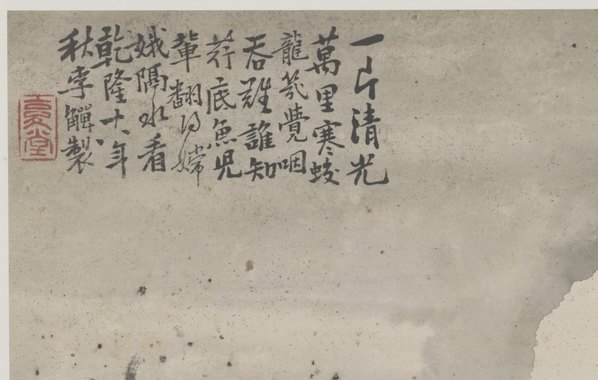 一片清光
萬里寒蛟
龍覺咽
吞難誰知
荇底魚兒
輩翻得嫦
娥隔水看
乾隆十八年
秋李觶製